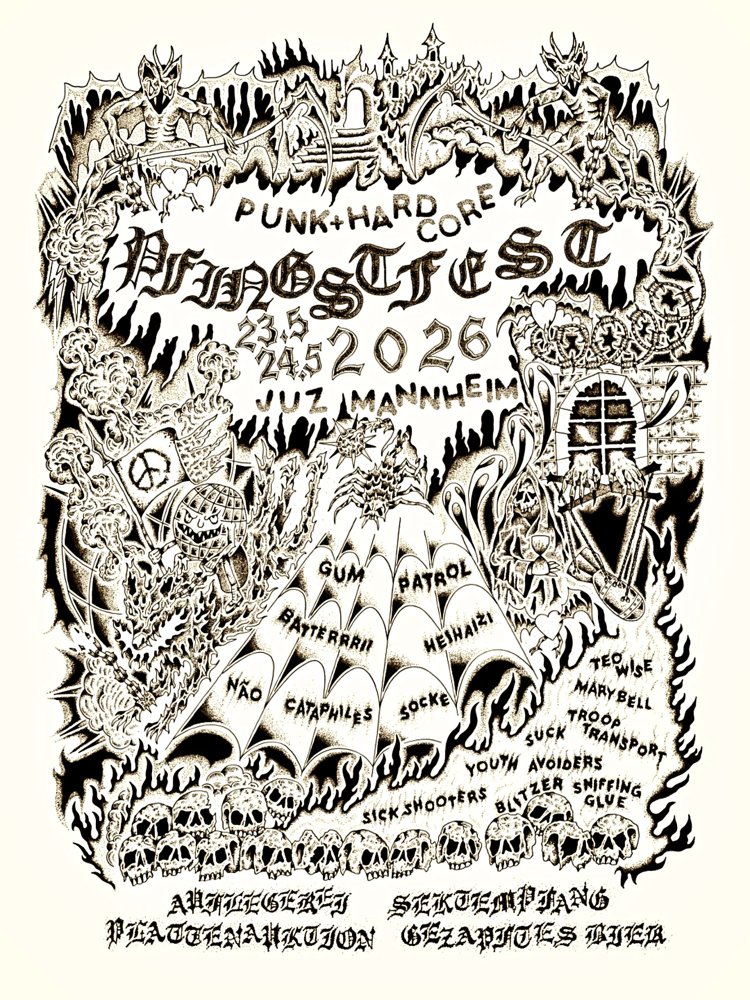 PUNK+HARD
CORE
PFINGSTFEST
23.5
24.5 2026
JUZ MANNHEIM
GUM PATROL
BATTERRRII HEIHAIZI
NÃO CATAPHILES SOCKE
TED WISE
MARYBELL
TROOP
TRANSPORT
SUCK
YOUTH AVOIDERS
SICKSHOOTERS
BLITZER SNIFFING
GLUE
AUFLEGEREI SEKTEMPFANG
PLATTENAUKTION GEZAPFTES BIER